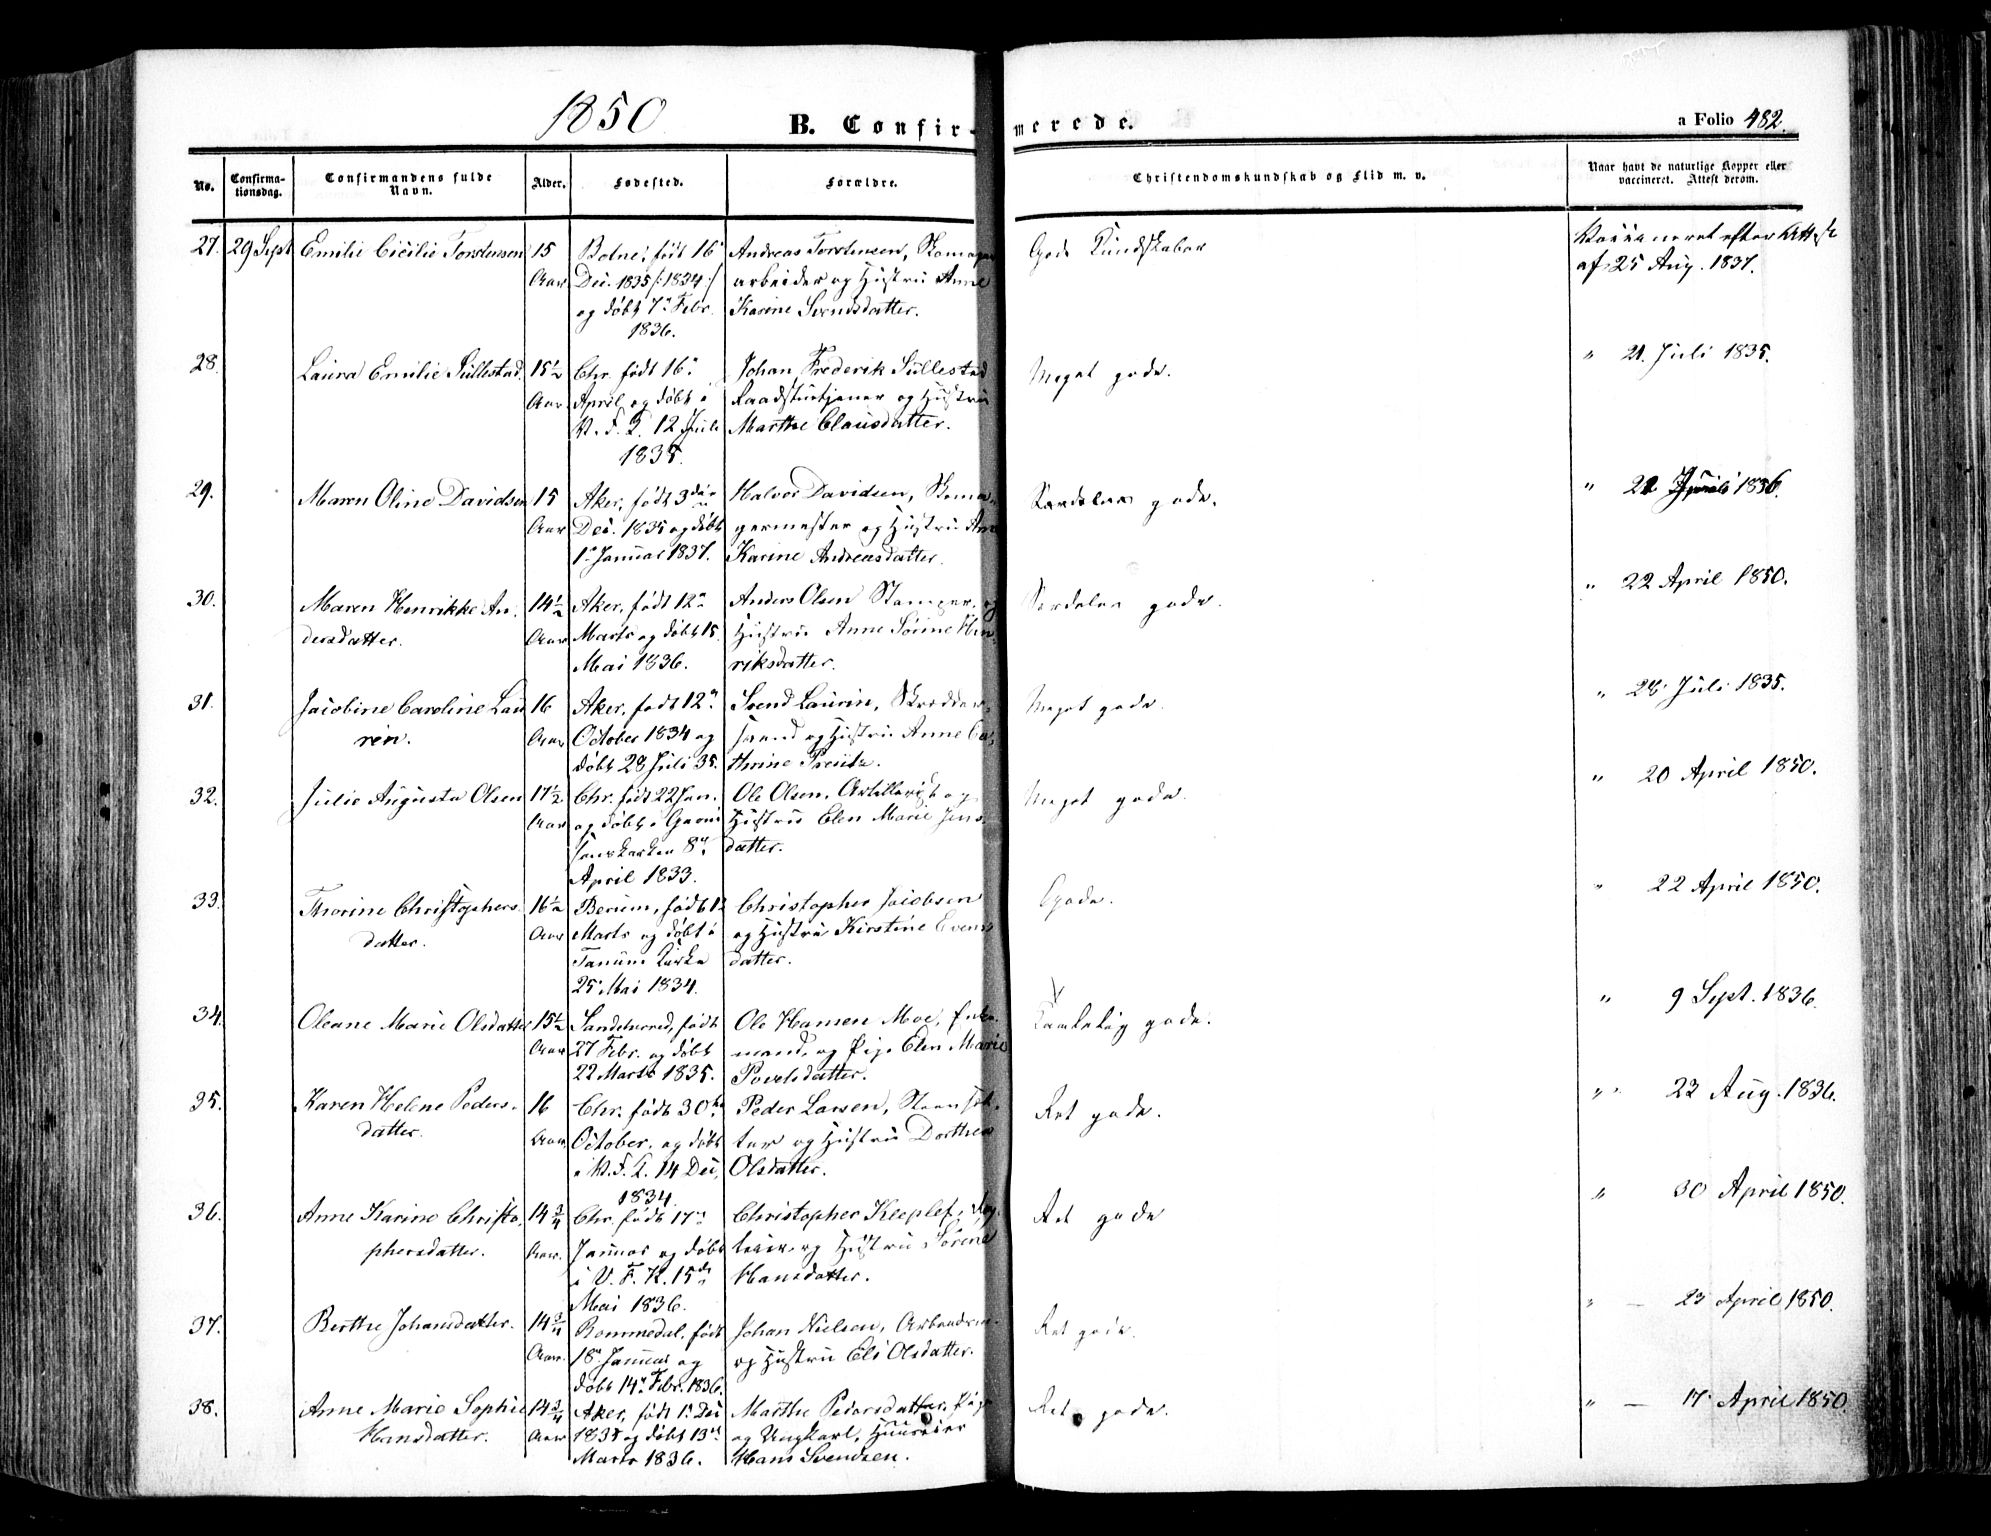 1850
B. Confirmerede.
a Folio 482.
No.
Confirmationsdag.
Confirmandens fulde Navn.
Alder.
Fødested.
Forældre.
Christendomskundskab og Flid m. v.
Naar havt de naturlige Kopper eller vaccineret. Attest derom.
27. 29 Sept Emilie Cicilie Torstensen 15 Botne, født 16n Andreas Torstensen, Skomager God Kundskaber Vaccineret efter Attest
Aar Dec. 1835 /: 1834 :/ arbeider og Hustru Anne af 25 Aug. 1837.
og døbt 7n Febr. Karine Svendsdatter.
1836.
28. Laura Emilie Sullestad. 15½ Chr. født 16n Johan Frederik Sullestad Meget gode. " 21. Juli 1835.
Aar April og døbt i Raadstutjener og Hustru
V. F. K. 12 Juli Marthe Clausdatter.
1835.
29. Maren Oline Davidsen 15 Aker, født 3die Halvor Davidsen, Skoma- Særdeles gode. " 1836.
Aar Dec. 1835 og døbt germester og Hustru Ane
1n Januar 1837. Karine Andreasdatter.
30. Maren Henrikke An- 14½ Aker, født 12n Anders Olsen Stamper og Særdeles gode. " 22 April 1850.
dersdatter. Aar Marts og døbt 15 Hustru Anne Sörine Hen-
Mai 1836. riksdatter.
31. Jacobine Caroline Lau 16 Aker, født 12n Svend Laurin, Skrædder- Meget gode. " 28 Juli 1835.
rin. Aar October 1834 og svend og Hustru Anne Ca-
døbt 28 Juli 35. thrine Preutz.
32. Julie Augusta Olsen 17½ Chr. født 22 Jan. Ole Olsen, Artillerist og Meget gode. " 20 April 1850.
Aar og døbt i Garni Hustru Elen Marie Jens-
sonskirken 8n datter.
April 1833.
33. Thorine Christophers- 16½ Berum, født 12 Christopher Jacobsen Gode. " 22 April 1850.
datter. Aar Marts og døbt i og Hustru Kirstine Evens-
Tanum Kirke datter.
25 Mai 1834.
34. Oleane Marie Olsdatter 15½ Sandehered, født Ole Hansen Moe, Enke- Temmelig gode. " 9 Sept. 1836.
Aar 27 Febr. og døbt mand, og Pige Elen Marie
22 Marts 1835. Povelsdatter.
35. Karen Helene Peders- 16 Chr. født 30te Peder Larsen, Steensæt- Ret gode. " 23 Aug. 1836.
datter. Aar. October, og døbt ter og Hustru Dorthea
i V. F. K. 14 Dec. Olsdatter.
1834.
36. Anne Karine Christo- 14¾ Chr. født 17n Christopher Ret gode " 30 April 1850.
phersdatter. Aar. Januar og døbt og Hustru Sörene
i V. F. K. 15de Hansdatter.
Mai 1836.
37. Berthe Johansdatter. 14¾ Rommedal, født Johan Nielsen, Arbeidsm. Ret gode. " — 23 April 1850.
Aar. 18n Januar og og Hustru Eli Olsdatter.
døbt 14n Febr. 1836.
38. Anne Marie Sophie 14¾ Aker, født 1n Dec Marthe Pedersdatter, Pige Ret gode. " — 17 April 1850.
Hansdatter. Aar 1835 og døbt 13n og Ungkarl, Huuseier
Marts 1836. Hans Svendsen.